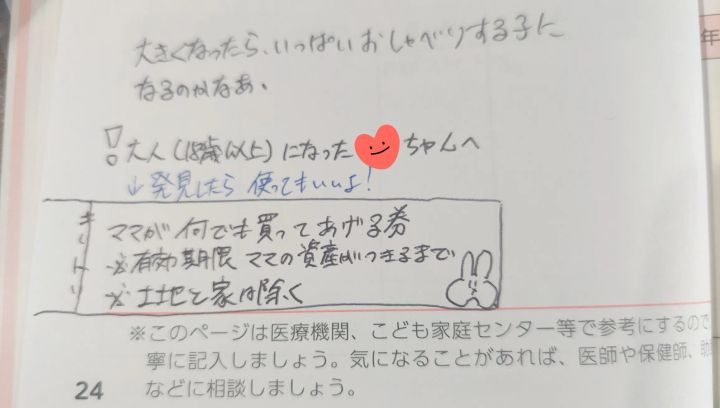 大きくなったら、いっぱいおしゃべりする子に
なるのかなあ。
! 大人(18歳以上)になった ちゃんへ
↓発見したら 使ってもいいよ!
キリトリ
ママが何でも買ってあげる券
※有効期限 ママの資産がつきるまで
※土地と家は除く
※このページは医療機関、こども家庭センター等で参考にするので
寧に記入しましょう。気になることがあれば、医師や保健師、助
などに相談しましょう。
24
年